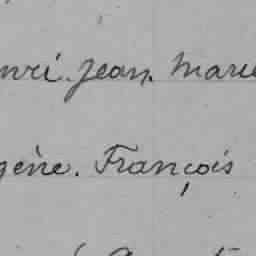 nri. Jean. Marie
gène. François